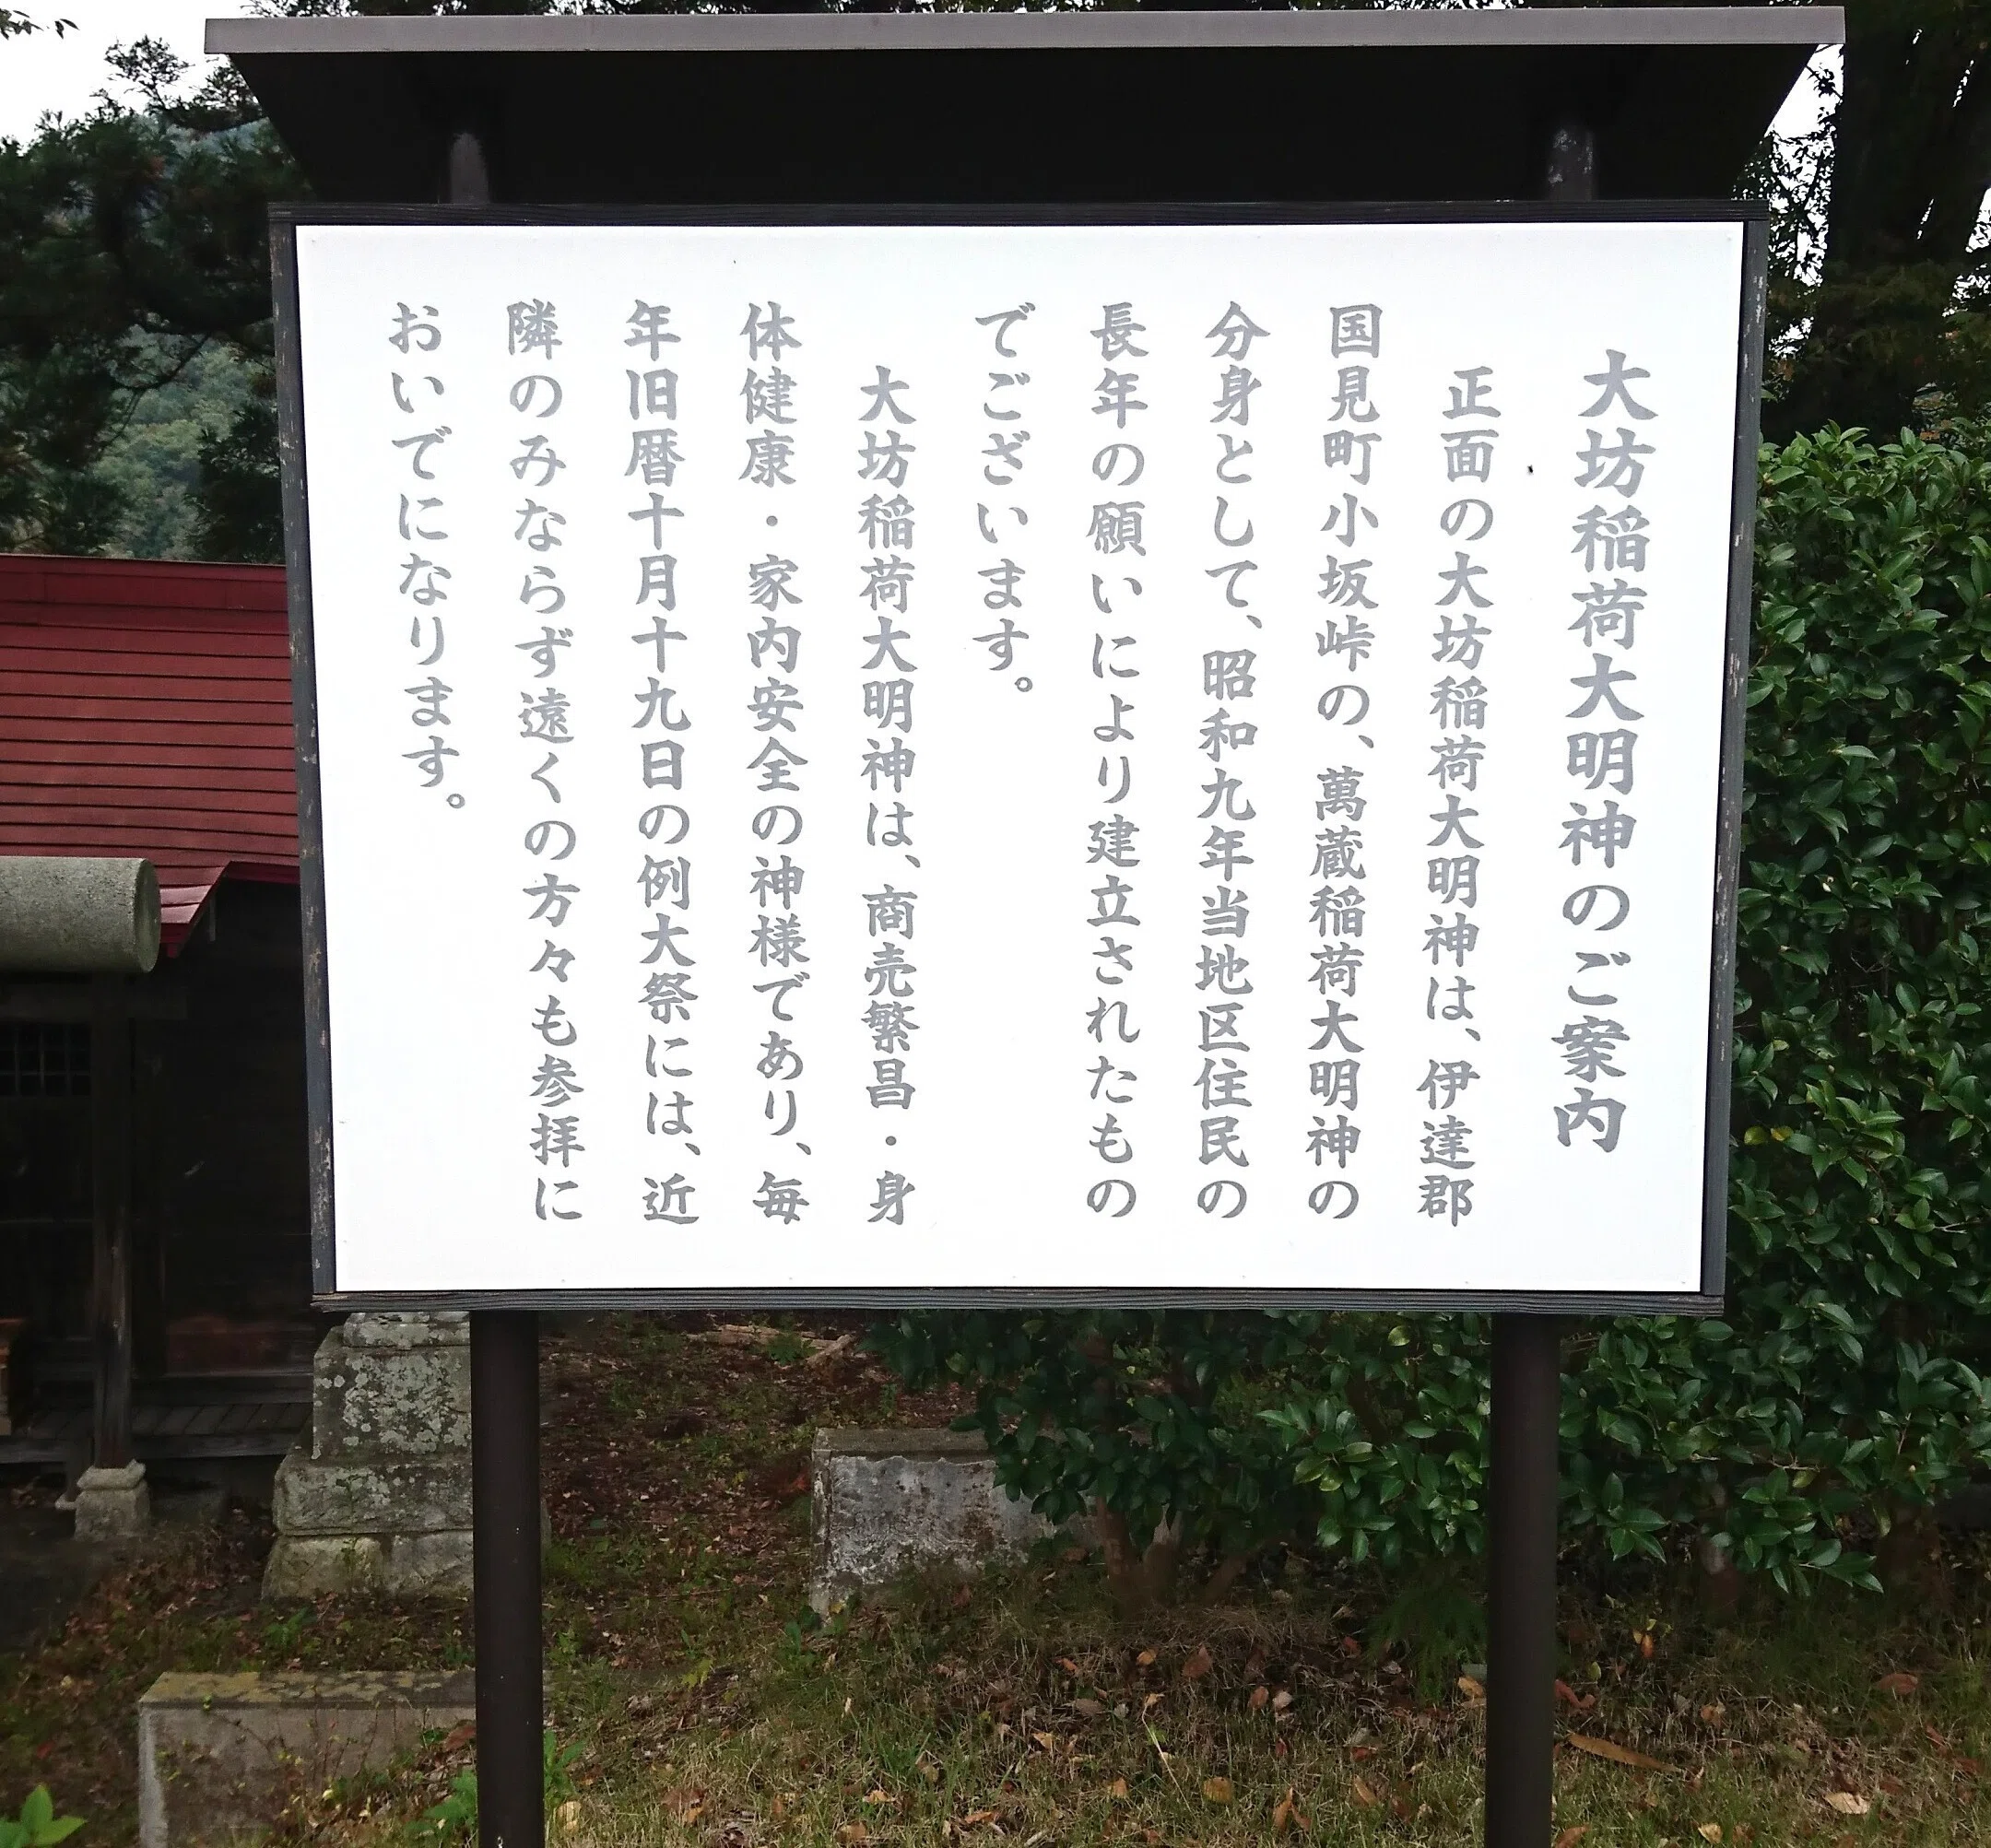 大坊稲荷大明神のご案内
正面の大坊稲荷大明神は、伊達郡
国見町小坂峠の、萬蔵稲荷大明神の
分身として、昭和九年当地区住民の
長年の願いにより建立されたもの
でございます。
大坊稲荷大明神は、商売繁昌・身
体健康・家内安全の神様であり、毎
年旧暦十月十九日の例大祭には、近
隣のみならず遠くの方々も参拝に
おいでになります。